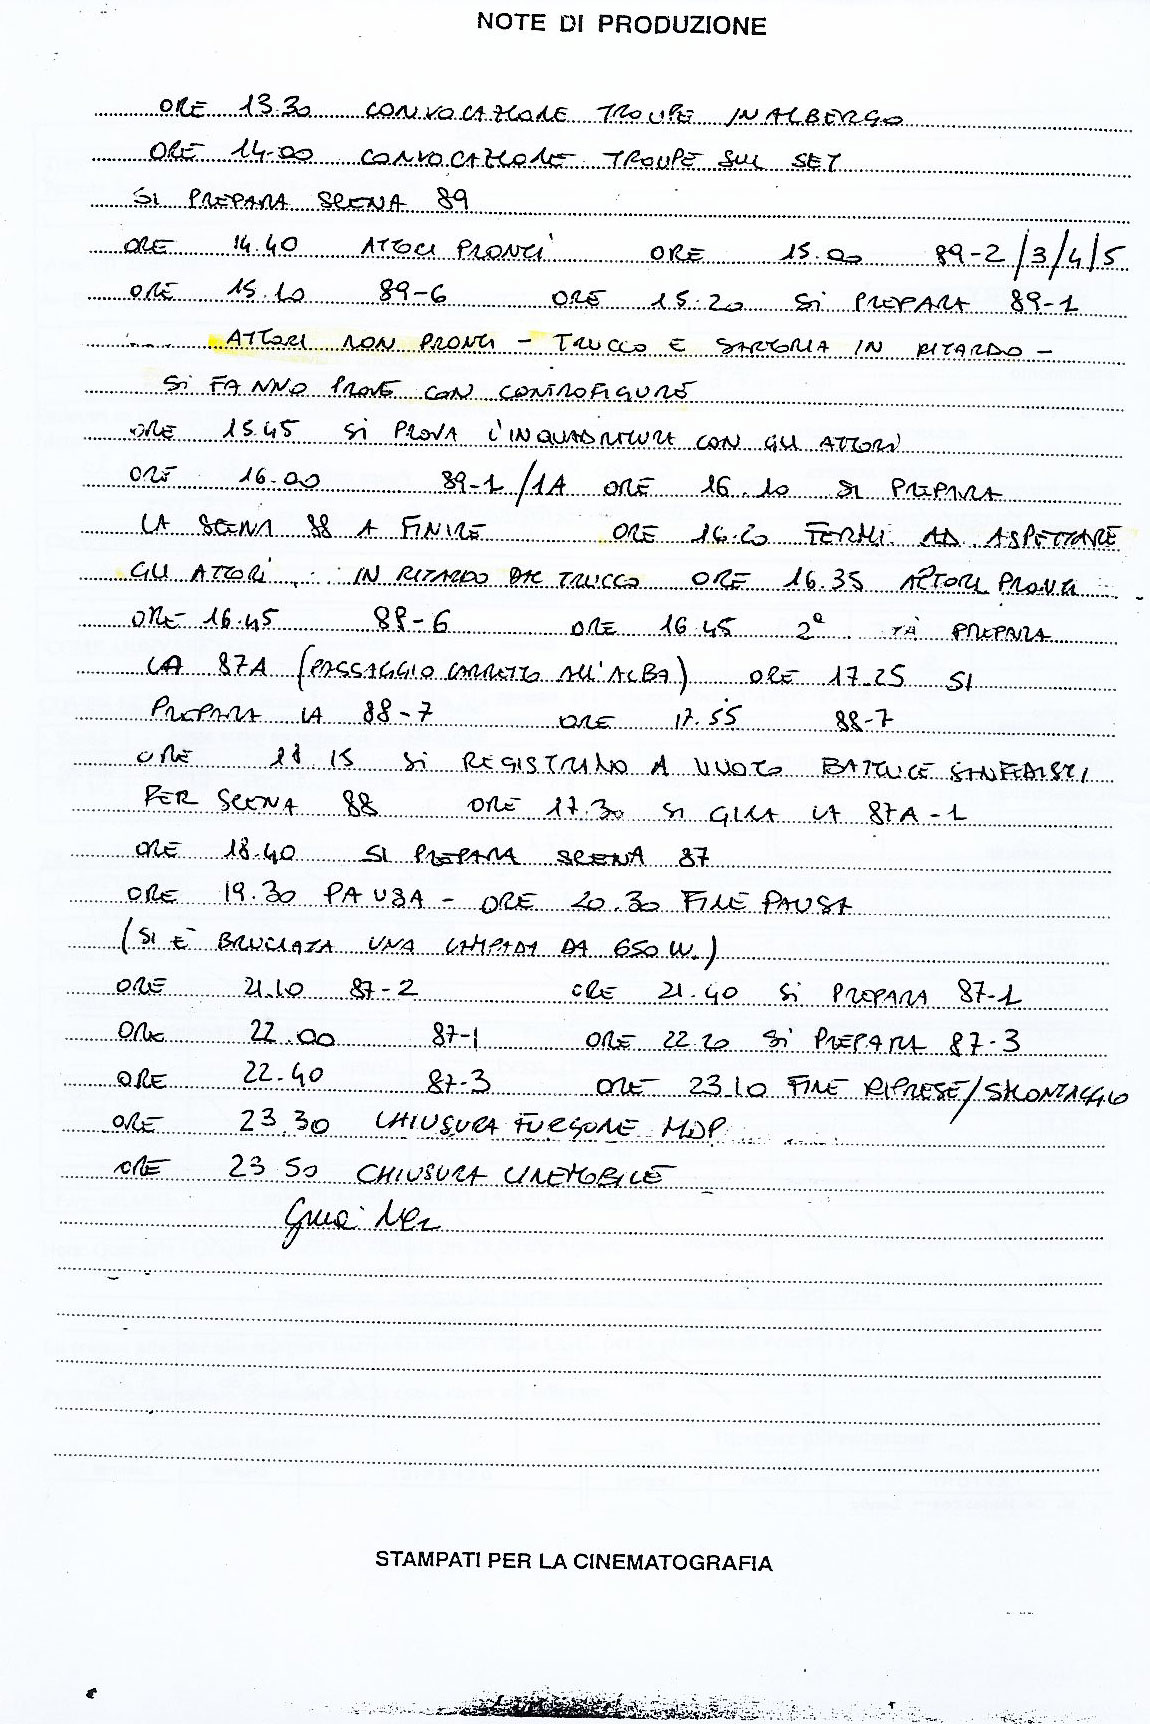 NOTE DI PRODUZIONE
ORE 13.30 CONVOCAZIONE TROUPE IN ALBERGO
ORE 14.00 CONVOCAZIONE TROUPE SUL SET
SI PREPARA SCENA 89
ORE 14.40 ATTORI PRONTI ORE 15.00 89-2/3/4/5
ORE 15.10 89-6 ORE 15.20 SI PREPARA 89-1
ATTORI NON PRONTI - TRUCCO E SARTORIA IN RITARDO -
SI FANNO PROVE CON CONTROFIGURE
ORE 15.45 SI PROVA L'INQUADRATURA CON GLI ATTORI
ORE 16.00 89-1/1A ORE 16.10 SI PREPARA
LA SCENA 88 A FINIRE ORE 16.20 FERMI AD ASPETTARE
GLI ATTORI IN RITARDO DAL TRUCCO ORE 16.35 ATTORI PRONTI
ORE 16.45 88-6 ORE 16.45 2ª PREPARA
LA 87A (PASSAGGIO CARRETTO ALL'ALBA) ORE 17.25 SI
PREPARA LA 88-7 ORE 17.55 88-7
ORE 18 15 SI REGISTRANO A VUOTO BATTUTE
PER SCENA 88 ORE 17.30 SI GIRA LA 87A-1
ORE 18.40 SI PREPARA SCENA 87
ORE 19.30 PAUSA - ORE 20.30 FINE PAUSA
(SI E' BRUCIATA UNA LAMPADA DA 650 W.)
ORE 21.10 87-2 ORE 21.40 SI PREPARA 87-1
ORE 22.00 87-1 ORE 22.20 SI PREPARA 87-3
ORE 22.40 87-3 ORE 23.10 FINE RIPRESE/SMONTAGGIO
ORE 23.30 CHIUSURA FURGONE MDP
ORE 23 50 CHIUSURA CINEMOBILE
STAMPATI PER LA CINEMATOGRAFIA